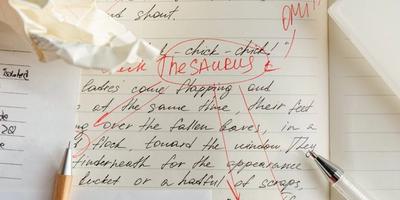 and shout.
OMIT!
chick-chick!"
THESAURUS
ladies come flapping and
at the same time, their feet
over the fallen leaves, in a
flock, toward the window. They
underneath for the appearance
bucket or a handful of scraps,
isolated